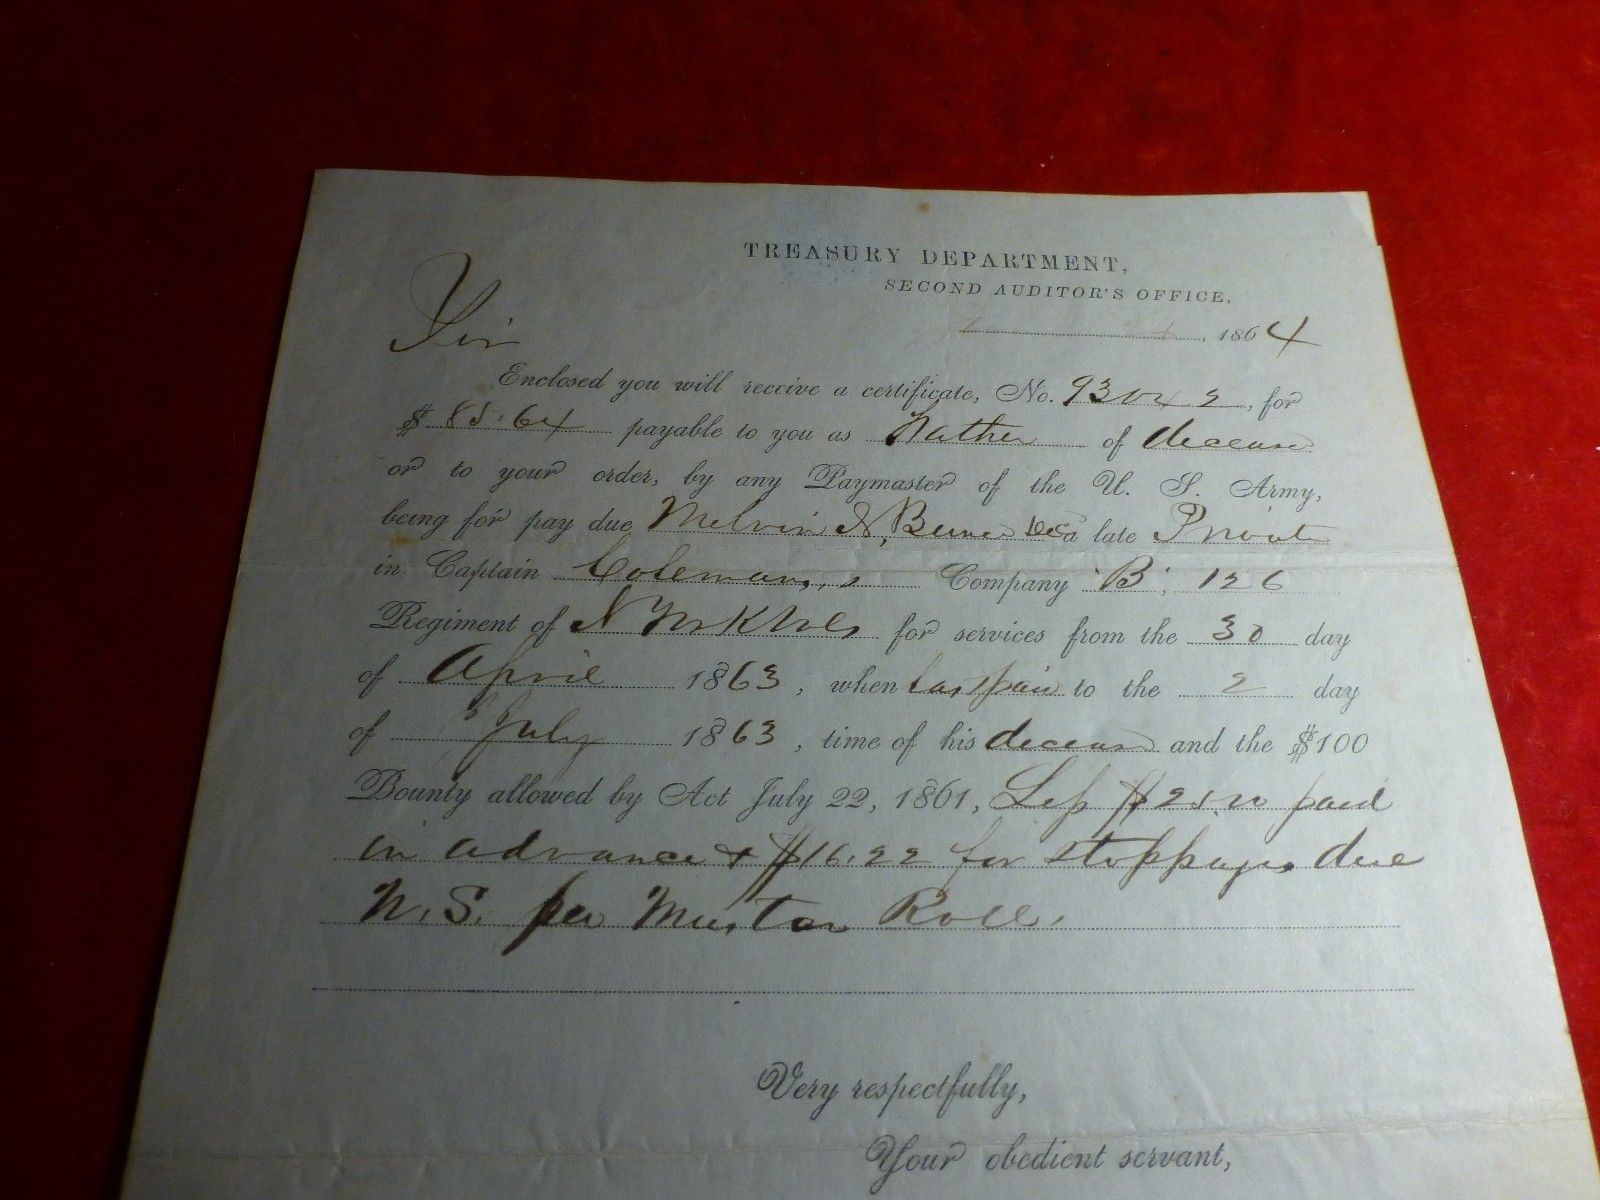 TREASURY DEPARTMENT,
SECOND AUDITOR'S OFFICE,
, 1864
Sir
Enclosed you will receive a certificate, No. 93042, for
$ 85.64 payable to you as Father of deceased
or to your order, by any Paymaster of the U. S. Army,
being for pay due Melvin N. Decd a late Private
in Captain Coleman,s Company "B", 126
Regiment of N York Vols for services from the 30 day
of April 1863, when last paid to the 2 day
of July 1863, time of his decease and the $100
Bounty allowed by Act July 22, 1861, Less $25.00 paid
in advance & $16.22 for stoppages due
U.S. per Muster Roll.
Very respectfully,
Your obedient servant,